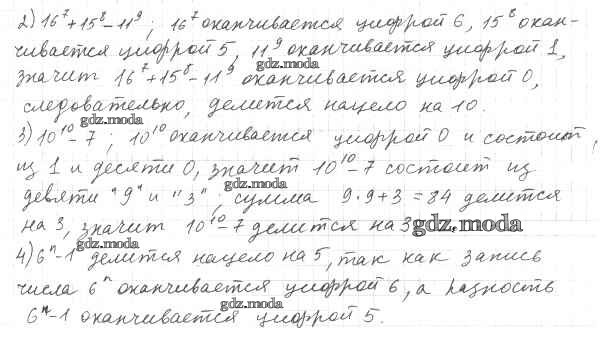 2) 16⁷+15⁸-11⁹; 16⁷ оканчивается цифрой 6, 15⁸ окан-
чивается цифрой 5, 11⁹ оканчивается цифрой 1,
gdz.moda
значит 16⁷+15⁸-11⁹ оканчивается цифрой 0,
следовательно, делится нацело на 10.
gdz.moda
3) 10¹⁰-7; 10¹⁰ оканчивается цифрой 0 и состоит,
из 1 и десяти 0, значит 10¹⁰-7 состоит из
gdz.moda
девяти "9" и "3", сумма 9·9+3=84 делится
на 3, значит 10¹⁰-7 делится на 3 gdz.moda
gdz.moda
4) 6ⁿ-1 делится нацело на 5, так как запись
числа 6ⁿ оканчивается цифрой 6, а разность
gdz.moda
6ⁿ-1 оканчивается цифрой 5.